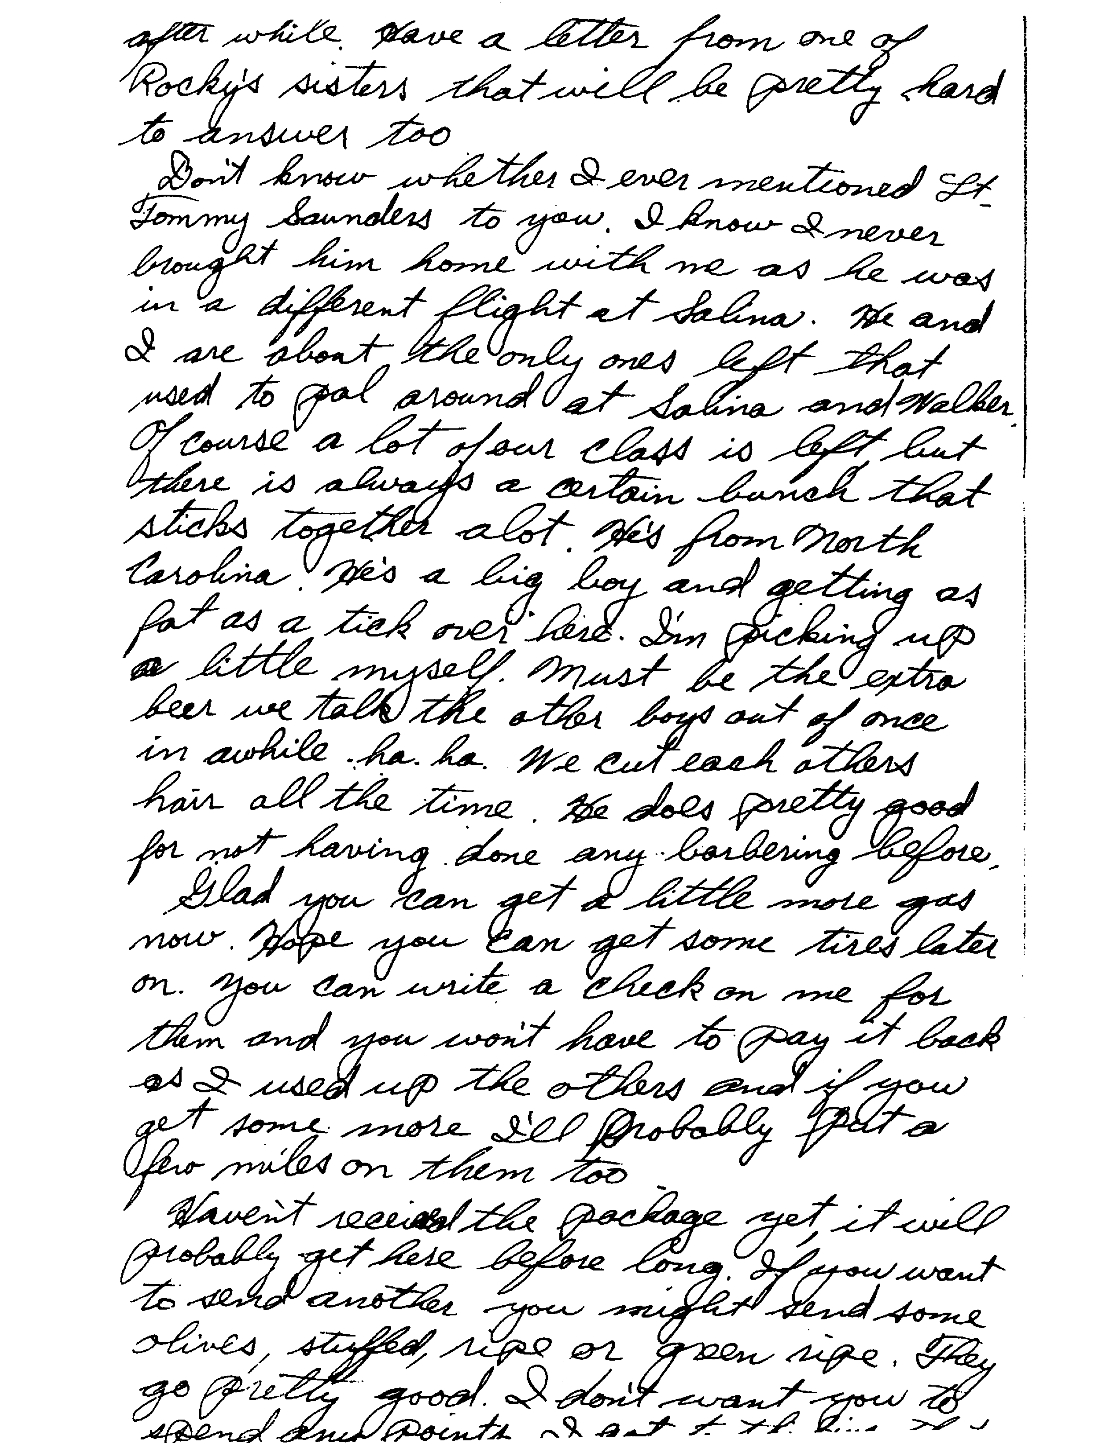 after while. Have a letter from one of
Rocky's sisters that will be pretty hard
to answer too
Don't know whether I ever mentioned Lt.
Tommy Saunders to you. I know I never
brought him home with me as he was
in a different flight at Salina. He and
I are about the only ones left that
used to pal around at Salina and Walker.
Of course a lot of our class is left, but
there is always a certain bunch that
sticks together alot. He's from North
Carolina. He's a big boy and getting as
fat as a tick over here. I'm picking up
a little myself. Must be the extra
beer we talk the other boys out of once
in awhile. ha. ha. We cut each others
hair all the time. He does pretty good
for not having done any barbering before.
Glad you can get a little more gas
now. Hope you can get some tires later
on. You can write a check on me for
them and you won't have to pay it back
as I used up the others and if you
get some more I'll probably put a
few miles on them too
Haven't received the package yet, it will
probably get here before long. If you want
to send another you might send some
olives, stuffed, ripe or green ripe. They
go pretty good. I don't want you to
spend any points. I